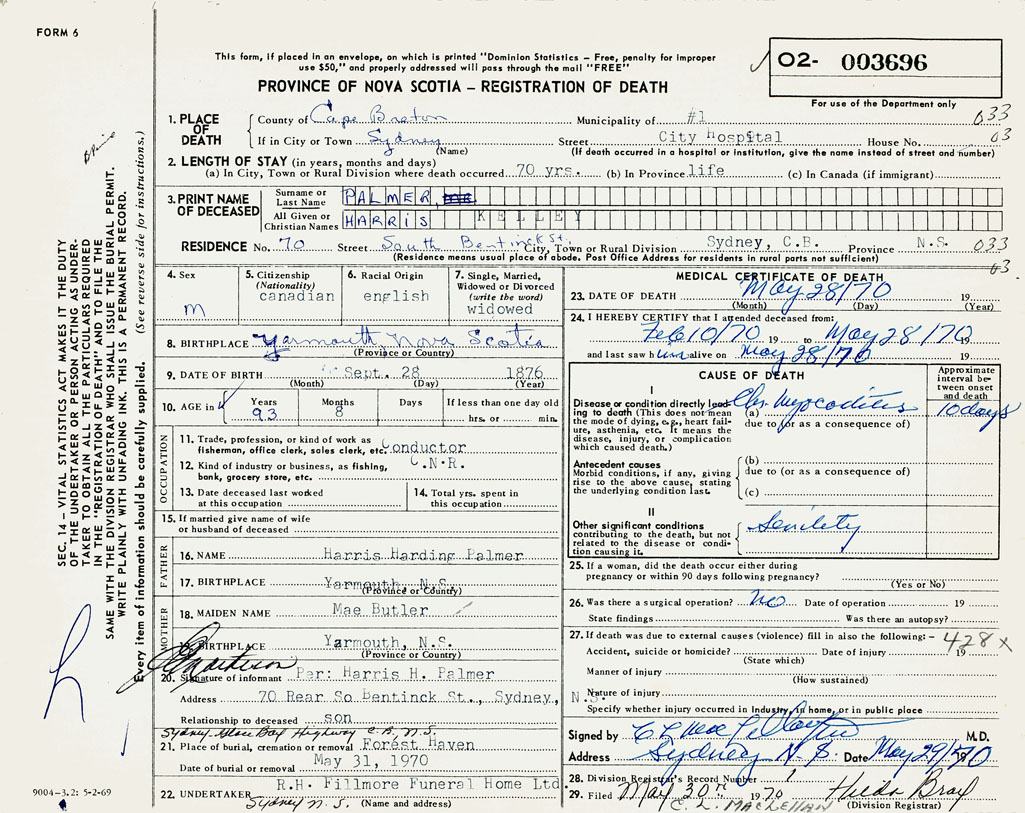 FORM 6
This form, if placed in an envelope, on which is printed "Dominion Statistics – Free, penalty for improper
use $50," and properly addressed will pass through the mail "FREE"
PROVINCE OF NOVA SCOTIA – REGISTRATION OF DEATH
02- 003696
For use of the Department only
1. PLACE OF DEATH County of Cape Breton Municipality of #1 033
If in City or Town Sydney (Name) Street City Hospital House No. 03
(If death occurred in a hospital or institution, give the name instead of street and number)
2. LENGTH OF STAY (in years, months and days)
(a) In City, Town or Rural Division where death occurred 70 yrs. (b) In Province life (c) In Canada (if immigrant)
3. PRINT NAME OF DECEASED Surname or Last Name PALMER,
All Given or Christian Names HARRIS KELLEY
RESIDENCE No. 70 Street South Bentinck St. City, Town or Rural Division Sydney, C.B. Province N.S. 033
(Residence means usual place of abode. Post Office Address for residents in rural parts not sufficient) 03
4. Sex
M
5. Citizenship
(Nationality)
canadian
6. Racial Origin
english
7. Single, Married,
Widowed or Divorced
(write the word)
widowed
8. BIRTHPLACE Yarmouth, Nova Scotia
(Province or Country)
9. DATE OF BIRTH Sept. 28 1876
(Month) (Day) (Year)
10. AGE in Years 93 Months 8 Days If less than one day old
hrs. or min.
OCCUPATION
11. Trade, profession, or kind of work as
fisherman, office clerk, sales clerk, etc. Conductor
12. Kind of industry or business, as fishing, C.N.R.
bank, grocery store, etc.
13. Date deceased last worked
at this occupation
14. Total yrs. spent in
this occupation
15. If married give name of wife
or husband of deceased
FATHER
16. NAME Harris Harding Palmer
17. BIRTHPLACE Yarmouth, N.S.
(Province or Country)
MOTHER
18. MAIDEN NAME Mae Butler
19. BIRTHPLACE Yarmouth, N.S.
(Province or Country)
20. Signature of informant Per: Harris H. Palmer
Address 70 Rear So Bentinck St., Sydney, N.S.
Relationship to deceased son
Sydney Glace Bay Highway C.B., N.S.
21. Place of burial, cremation or removal Forest Haven
Date of burial or removal May 31, 1970
22. UNDERTAKER R.H. Fillmore Funeral Home Ltd.
Sydney N.S. (Name and address)
MEDICAL CERTIFICATE OF DEATH
23. DATE OF DEATH May 28/70 19
(Month) (Day) (Year)
24. I HEREBY CERTIFY that I attended deceased from:
Feb 10/70 19 to May 28/70 19
and last saw him alive on May 28/70 19
CAUSE OF DEATH
Approximate
interval be-
tween onset
and death
I
Disease or condition directly lead-
ing to death (This does not mean
the mode of dying, e.g., heart fail-
ure, asthenia, etc. It means the
disease, injury, or complication
which caused death.)
(a) Chr Myocoditis 10 days
due to (or as a consequence of)
Antecedent causes
Morbid conditions, if any, giving
rise to the above cause, stating
the underlying condition last.
(b)
due to (or as a consequence of)
(c)
II
Other significant conditions
contributing to the death, but not
related to the disease or condi-
tion causing it.
Senility
25. If a woman, did the death occur either during
pregnancy or within 90 days following pregnancy?
(Yes or No)
26. Was there a surgical operation? No Date of operation 19
State findings Was there an autopsy?
27. If death was due to external causes (violence) fill in also the following:– 428 x
Accident, suicide or homicide? Date of injury 19
(State which)
Manner of injury
(How sustained)
Nature of injury
Specify whether injury occurred in Industry, in home, or in public place
Signed by M.D.
Address Sydney N S Date May 29/70 19
28. Division Registrar's Record Number
29. Filed May 30th 1970 Hilda Bray
C. L. MACLELLAN (Division Registrar)
SEC. 14 – VITAL STATISTICS ACT MAKES IT THE DUTY
OF THE UNDERTAKER OR PERSON ACTING AS UNDER-
TAKER TO OBTAIN ALL THE PARTICULARS REQUIRED
IN THE "REGISTRATION OF DEATH" AND TO FILE THE
SAME WITH THE DIVISION REGISTRAR WHO SHALL ISSUE THE BURIAL PERMIT.
WRITE PLAINLY WITH UNFADING INK. THIS IS A PERMANENT RECORD.
Every item of information should be carefully supplied. (See reverse side for instructions.)
9004-3.2: 5-2-69